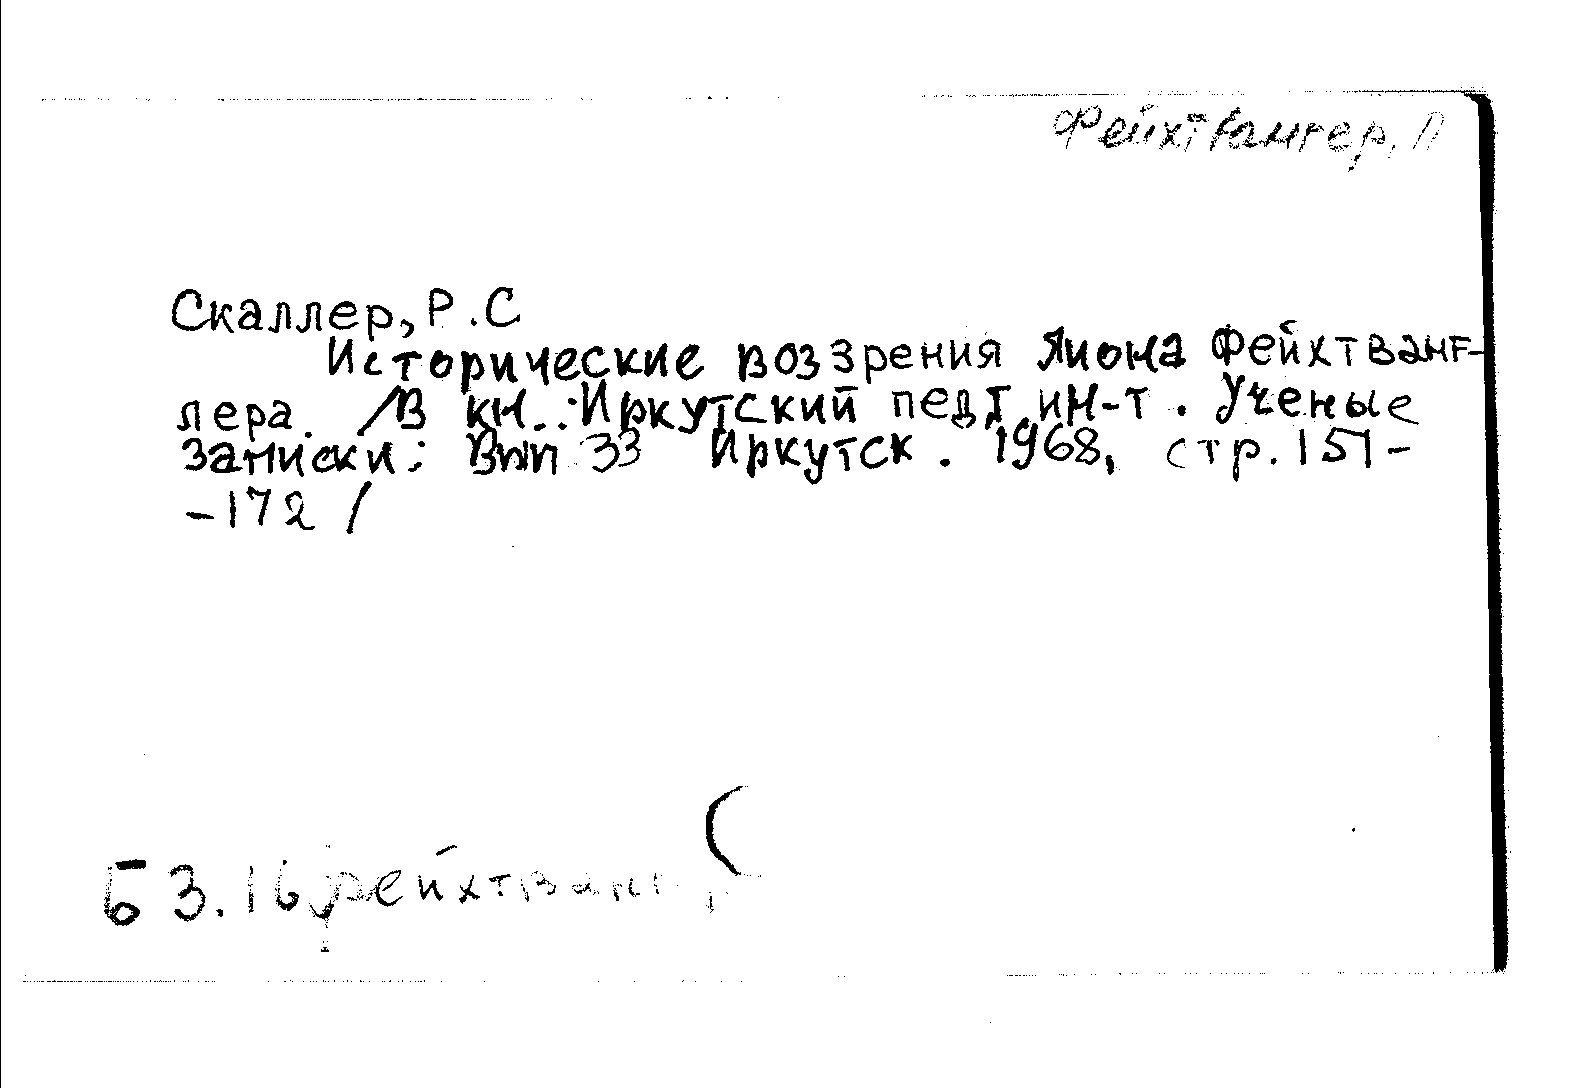 Фейхтвангер, Л
Скаллер, Р.С
Исторические воззрения Лиона Фейхтванг-
лера. /В кн.: Иркутский пед. ин-т. Ученые
записки: Вып 33 Иркутск. 1968, стр. 151-
-172 /
Б3.16 Фейхтванг